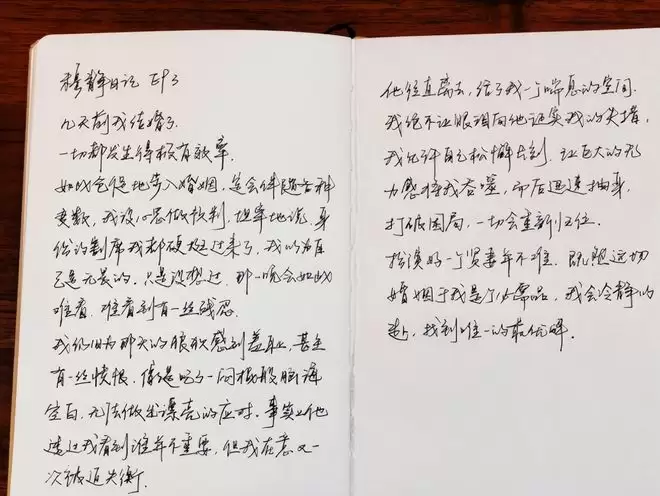 穆静日记 EP3
几天前我结婚了.
一切都发生得极有效率.
如此仓促地步入婚姻, 是会伴随各种
变数, 我没心思做预判, 坦率地说, 身
份的割席我都硬挺过来了, 我的为自
己是无畏的. 只是没想过, 那一晚会如此
难看, 难看到有一丝残忍.
我仍旧为那天的狼狈感到羞耻, 甚至
有一丝愤恨, 像是吃了一闷棍般脑海
空白, 无法做出漂亮的应对. 事实上他
透过我看到谁并不重要, 但我在意又一
次被迫失衡.
他径直离去, 给了我一个喘息的空间.
我绝不让眼泪向他证实我的失措,
我允许自己松懈片刻, 让巨大的无
力感将我吞噬, 而后迅速抽身,
打破困局, 一切会重新归位.
扮演好一个贤妻并不难, 既然这场
婚姻于我是个必需品, 我会冷静的
, 找到唯一的最优解.